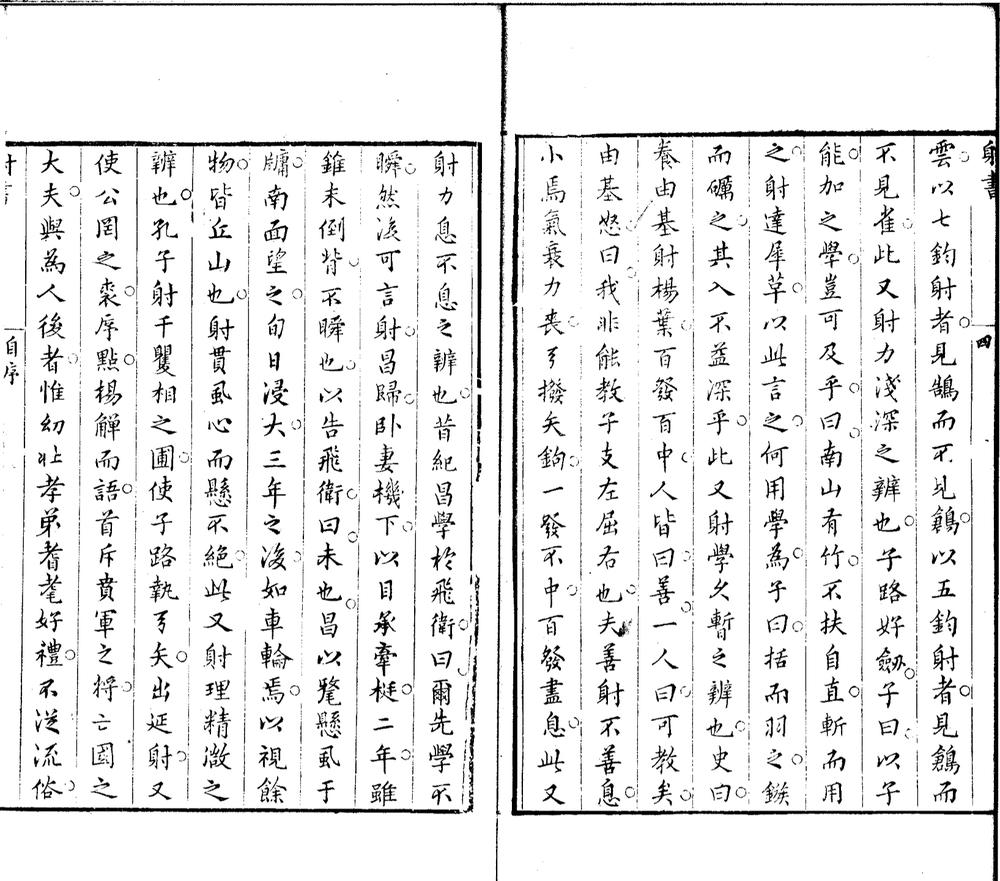 射書
四
雲以七鈞射者見鵠而不見鶬以五鈞射者見鶬而
不見雀此又射力淺深之辨也子路好劒子曰以子
能加之學豈可及乎曰南山有竹不扶自直斬而用
之射達犀革以此言之何用學為子曰括而羽之鏃
而礪之其入不益深乎此又射學久暫之辨也史曰
養由基射楊葉百發百中人皆曰善一人曰可教矣
由基怒曰我非能教子支左屈右也夫善射不善息
小焉氣衰力喪弓撥矢鉤一發不中百發盡息此又
射力息不息之辨也昔紀昌學於飛衛曰爾先學不
瞬然後可言射昌歸卧妻機下以目承牽梃二年雖
錐末倒眥不瞬也以告飛衛曰未也昌以氂懸虱于
牗南面望之旬日浸大三年之後如車輪焉以視餘
物皆丘山也射貫虱心而懸不絕此又射理精微之
辨也孔子射于矍相之圃使子路執弓矢出延射又
使公罔之裘序點楊觶而語首斥賁軍之將亡國之
大夫與為人後者惟幼壯孝弟耆耄好禮不從流俗
自序